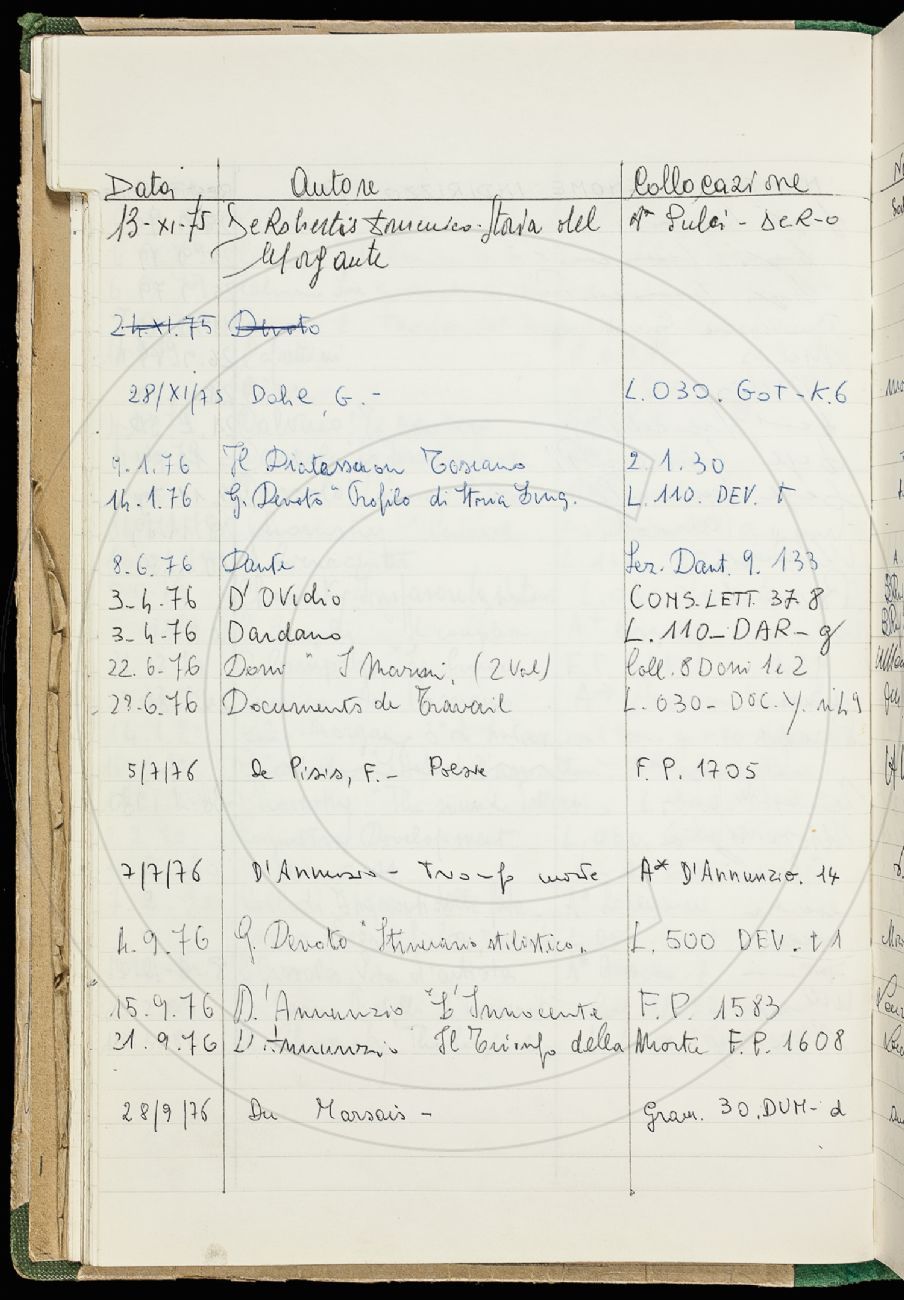 Data Autore Collocazione
13-XI-75 De Robertis Domenico. Storia del Pulci - DeR-o
Morgante
24.XI.75 Devoto
28/XI/75 Dahl, G. - L.030. GOT-K.6
9.1.76 Il Diatessaron Toscano 2.1.30
14.1.76 G. Devoto "Profilo di Storia Ling. L.110. DEV. t
8.6.76 Dante Sez. Dant. 9. 133
3-4.76 D'Ovidio CONS. LETT. 37.8
3-4-76 Dardano L.110-DAR-g
22.6-76 Doni " I Marmi, (2 Vol) Coll. 8 Doni 1 e 2
29-6.76 Documents de Travail L.030-DOC.
5/7/76 De Pisis, F. - Poesie F.P. 1705
7/7/76 D'Annunzio - morte A* D'Annunzio. 14
4.9.76 G. Devoto "Itinerario stilistico. L. 500 DEV. t 1
15.9.76 D'Annunzio "L'Innocente F.P. 1583
21.9.76 D'Annunzio Il Trionfo della Morte F.P. 1608
28/9/76 Du Marsais - Gram. 30.DUM-d